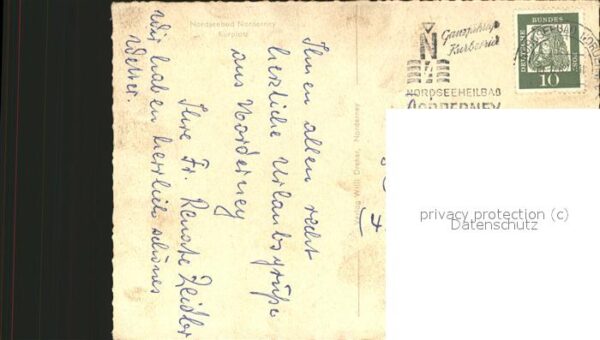 Nordseebad Norderney
Kurplatz
Ihnen allen recht
herzliche Urlaubsgrüße
aus Norderney
Ihre Fr. Renate Zeidler
Wir haben herrlich schönes
Wetter.
Ganzjährige
Kurbetrieb
N
NORDSEEHEILBAD
NORDERNEY
DEUTSCHE
BUNDES
POST
10
privacy protection (c)
Datenschutz